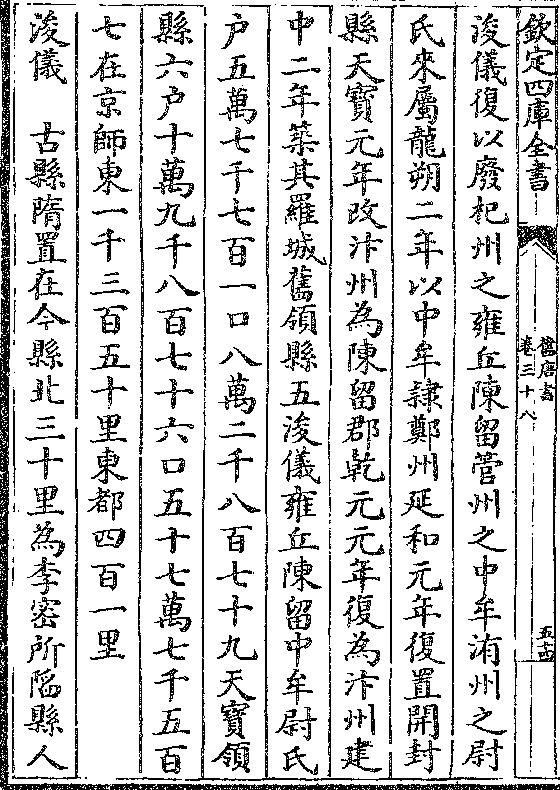 欽定四庫全書
舊唐書
卷三十八
五十四
浚儀復以廢杞州之雍丘陳留管州之中牟洧州之尉
氏來屬龍朔二年以中牟隷鄭州延和元年復置開封
縣天寶元年改汴州為陳留郡乾元元年復為汴州建
中二年築其羅城舊領縣五浚儀雍丘陳留中牟尉氏
户五萬七千七百一口八萬二千八百七十九天寶領
縣六户十萬九千八百七十六口五十七萬七千五百
七在京師東一千三百五十里東都四百一里
浚儀　古縣隋置在今縣北三十里為李密所陷縣人